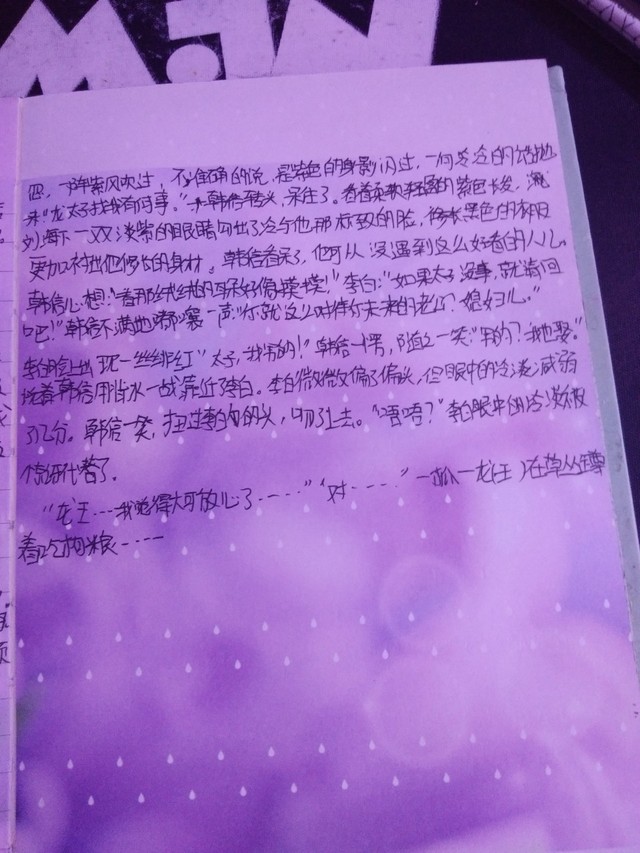 四,一阵紫风吹过,不,准确的说,是紫色的身影闪过,一句冷冷的话抛
来"龙太子找我有何事。"韩信转头,呆住了。看着柔软的紫色长发,
刘海下一双淡紫的眼睛勾出了冷与他那标致的脸,黑色的衣服
更加衬出他修长的身材。韩信看呆了,他可从没遇到这么好看的人儿。
韩信心想:"看那绒绒的耳朵好像摸摸!"李白:"如果太子没事,就请回
吧!"韩信不满地嘟囔一声:"你就这么对待你未来的老公?媳妇儿。"
李白脸上出现一丝绯红"太子,我男的!"韩信一愣,随之一笑:"男的?我也娶。"
说着韩信用背水一战靠近了李白。李白微微偏了偏头,但眼中的冷淡减弱
了几分。韩信一笑,扭过李白的头,吻了上去。"唔唔?"李白眼中的冷淡被
惊讶代替了。
"龙王……我觉得大可放心了……""对……"一狐一龙(王)在草丛里蹲
着吃狗粮……